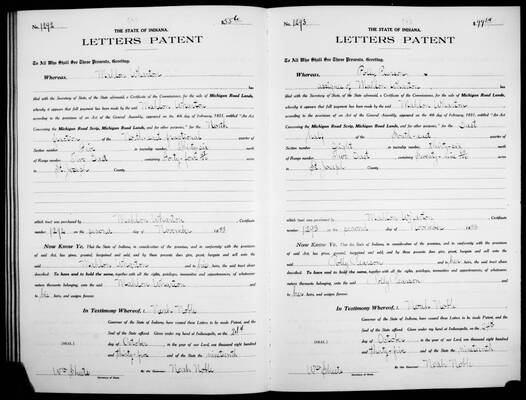 No. 1292
THE STATE OF INDIANA.
LETTERS PATENT
To All Who Shall See These Presents, Greeting:
Whereas, Mahlon Wharton
has
filed with the Secretary of State, of the State aforesaid, a Certificate of the Commissioner, for the sale of Michigan Road Lands,
whereby it appears that full payment has been made by the said Mahlon Wharton
according to the provisions of an Act of the General Assembly, approved on the 4th day of February, 1831, entitled "An Act
Concerning the Michigan Road Scrip, Michigan Road Lands, and for other purposes," for the North
fractional quarter of
Section number Five in township number Thirty-six north
of Range number Two East, containing Forty-four
St. Joseph County.
which tract was purchased by Mahlon Wharton, Certificate
number 1292 on the second day of November 1833
Now Know Ye, That the State of Indiana, in consideration of the premises, and in conformity with the provisions
of said Act, has given, granted, bargained and sold, and by these presents does give, grant, bargain and sell unto
the said Mahlon Wharton and his heirs, the said tract above
described. To have and to hold the same, together with all the rights, privileges, immunities and appurtenances, of whatsoever
nature thereunto belonging, unto the said Mahlon Wharton and
to his heirs, and assigns forever.
In Testimony Whereof, I, Noah Noble
Governor of the State of Indiana, have caused these Letters to be made Patent, and the
Seal of the State affixed. Given under my hand at Indianapolis, on the
[SEAL] day of October in the year of our Lord, one thousand eight hundred
and thirty-five and the nineteenth
Wm Sheets By the Governor: Noah Noble
Secretary of State.
No. 1293
THE STATE OF INDIANA.
LETTERS PATENT
To All Who Shall See These Presents, Greeting:
Whereas, Polly Pearson
assignee of Mahlon Wharton has
filed with the Secretary of State, of the State aforesaid, a Certificate of the Commissioner, for the sale of Michigan Road Lands,
whereby it appears that full payment has been made by the said Mahlon Wharton
according to the provisions of an Act of the General Assembly, approved on the 4th day of February, 1831, entitled "An Act
Concerning the Michigan Road Scrip, Michigan Road Lands, and for other purposes," for the East
Half of the South-east quarter of
Section number Eight in township number Thirty-six north
of Range number Two East, containing
St. Joseph County.
which tract was purchased by Mahlon Wharton, Certificate
number 1293 on the second day of November 1833
Now Know Ye, That the State of Indiana, in consideration of the premises, and in conformity with the provisions
of said Act, has given, granted, bargained and sold, and by these presents does give, grant, bargain and sell unto
the said Polly Pearson and her heirs, the said tract above
described. To have and to hold the same, together with all the rights, privileges, immunities and appurtenances, of whatsoever
nature thereunto belonging, unto the said Polly Pearson and
to her heirs, and assigns forever.
In Testimony Whereof, I, Noah Noble
Governor of the State of Indiana, have caused these Letters to be made Patent, and the
Seal of the State affixed. Given under my hand at Indianapolis, on the
[SEAL] day of October in the year of our Lord, one thousand eight hundred
and thirty-five and the nineteenth
Wm Sheets By the Governor: Noah Noble
Secretary of State.